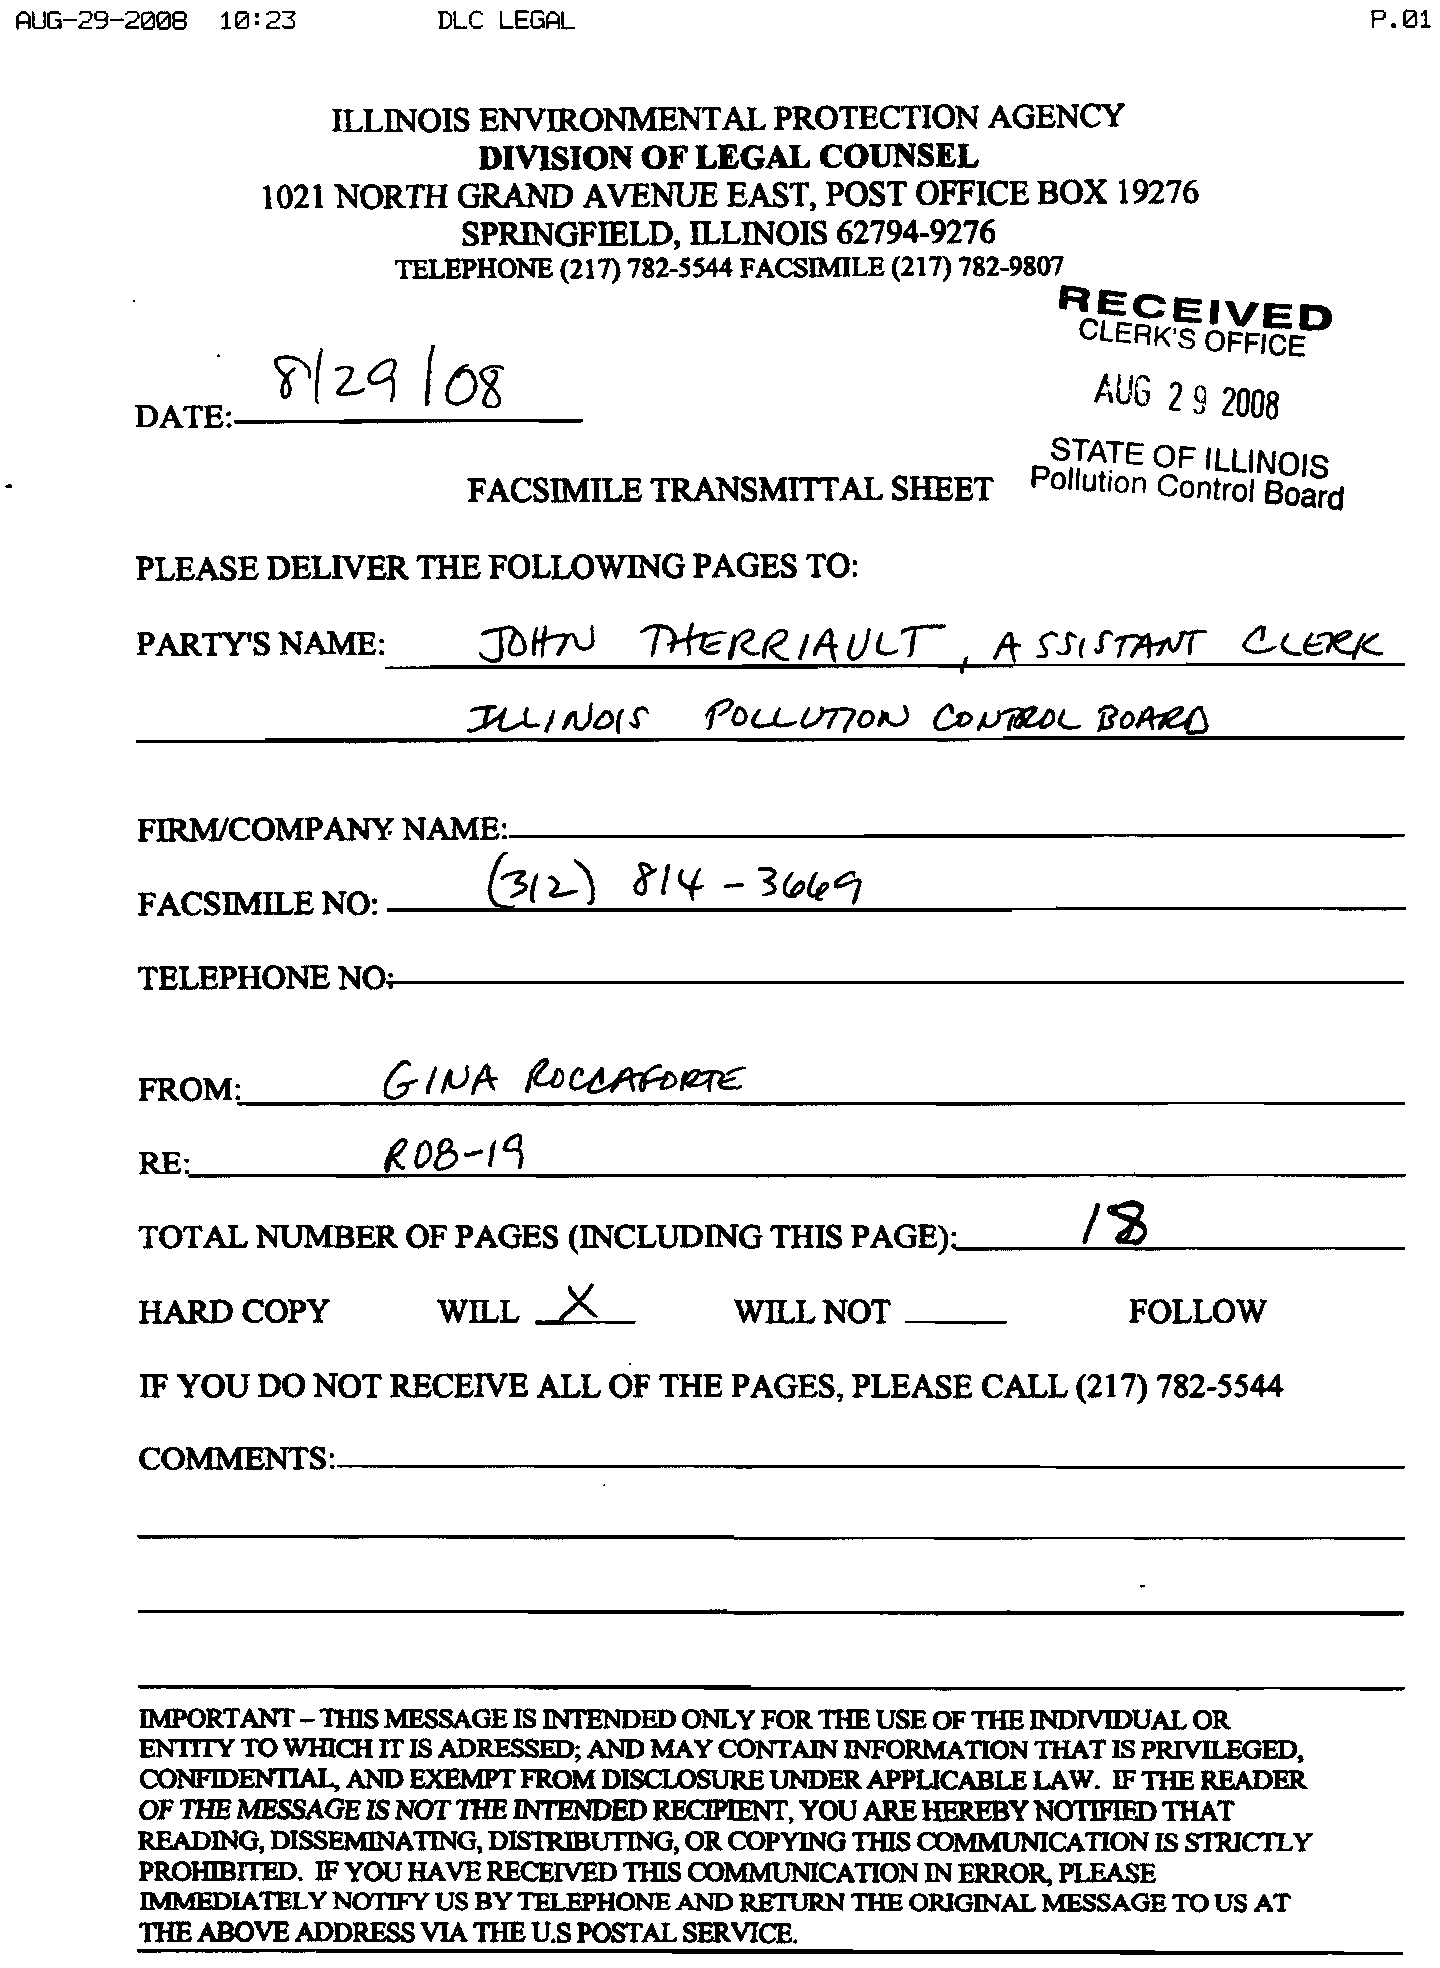 AUG-29-2008 10:23 DLC LEGAL P.01
ILLINOIS ENVIRONMENTAL PROTECTION AGENCY
DIVISION OF LEGAL COUNSEL
1021 NORTH GRAND AVENUE EAST, POST OFFICE BOX 19276
SPRINGFIELD, ILLINOIS 62794-9276
TELEPHONE (217) 782-5544 FACSIMILE (217) 782-9807
RECEIVED
CLERK'S OFFICE
AUG 29 2008
STATE OF ILLINOIS
Pollution Control Board
DATE: 8/29/08
FACSIMILE TRANSMITTAL SHEET
PLEASE DELIVER THE FOLLOWING PAGES TO:
PARTY'S NAME: JOHN THERRIAULT, ASSISTANT CLERK
ILLINOIS POLLUTION CONTROL BOARD
FIRM/COMPANY NAME:
FACSIMILE NO: (312) 814-3669
TELEPHONE NO:
FROM: GINA ROCCAFORTE
RE: R08-19
TOTAL NUMBER OF PAGES (INCLUDING THIS PAGE): 18
HARD COPY WILL X WILL NOT FOLLOW
IF YOU DO NOT RECEIVE ALL OF THE PAGES, PLEASE CALL (217) 782-5544
COMMENTS:
IMPORTANT – THIS MESSAGE IS INTENDED ONLY FOR THE USE OF THE INDIVIDUAL OR
ENTITY TO WHICH IT IS ADRESSED; AND MAY CONTAIN INFORMATION THAT IS PRIVILEGED,
CONFIDENTIAL, AND EXEMPT FROM DISCLOSURE UNDER APPLICABLE LAW. IF THE READER
OF THE MESSAGE IS NOT THE INTENDED RECIPIENT, YOU ARE HEREBY NOTIFIED THAT
READING, DISSEMINATING, DISTRIBUTING, OR COPYING THIS COMMUNICATION IS STRICTLY
PROHIBITED. IF YOU HAVE RECEIVED THIS COMMUNICATION IN ERROR, PLEASE
IMMEDIATELY NOTIFY US BY TELEPHONE AND RETURN THE ORIGINAL MESSAGE TO US AT
THE ABOVE ADDRESS VIA THE U.S POSTAL SERVICE.